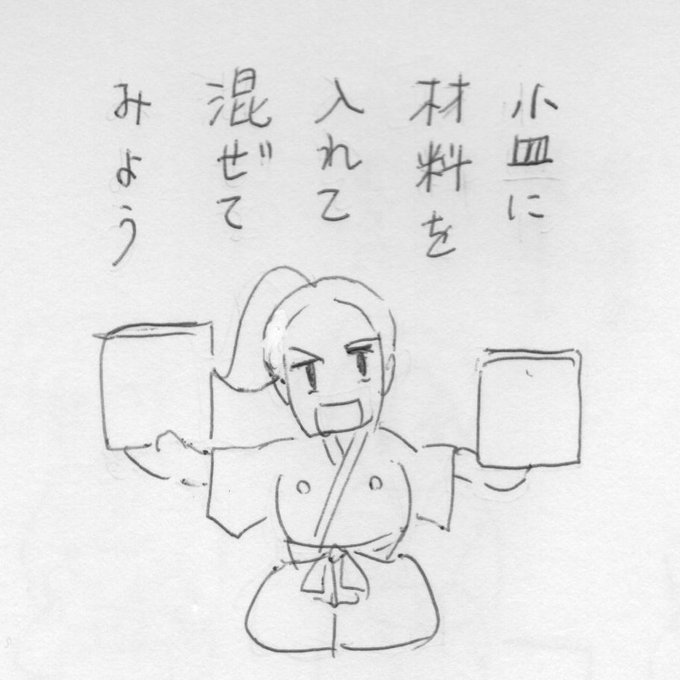 小皿に
材料を
入れて
混ぜて
みよう